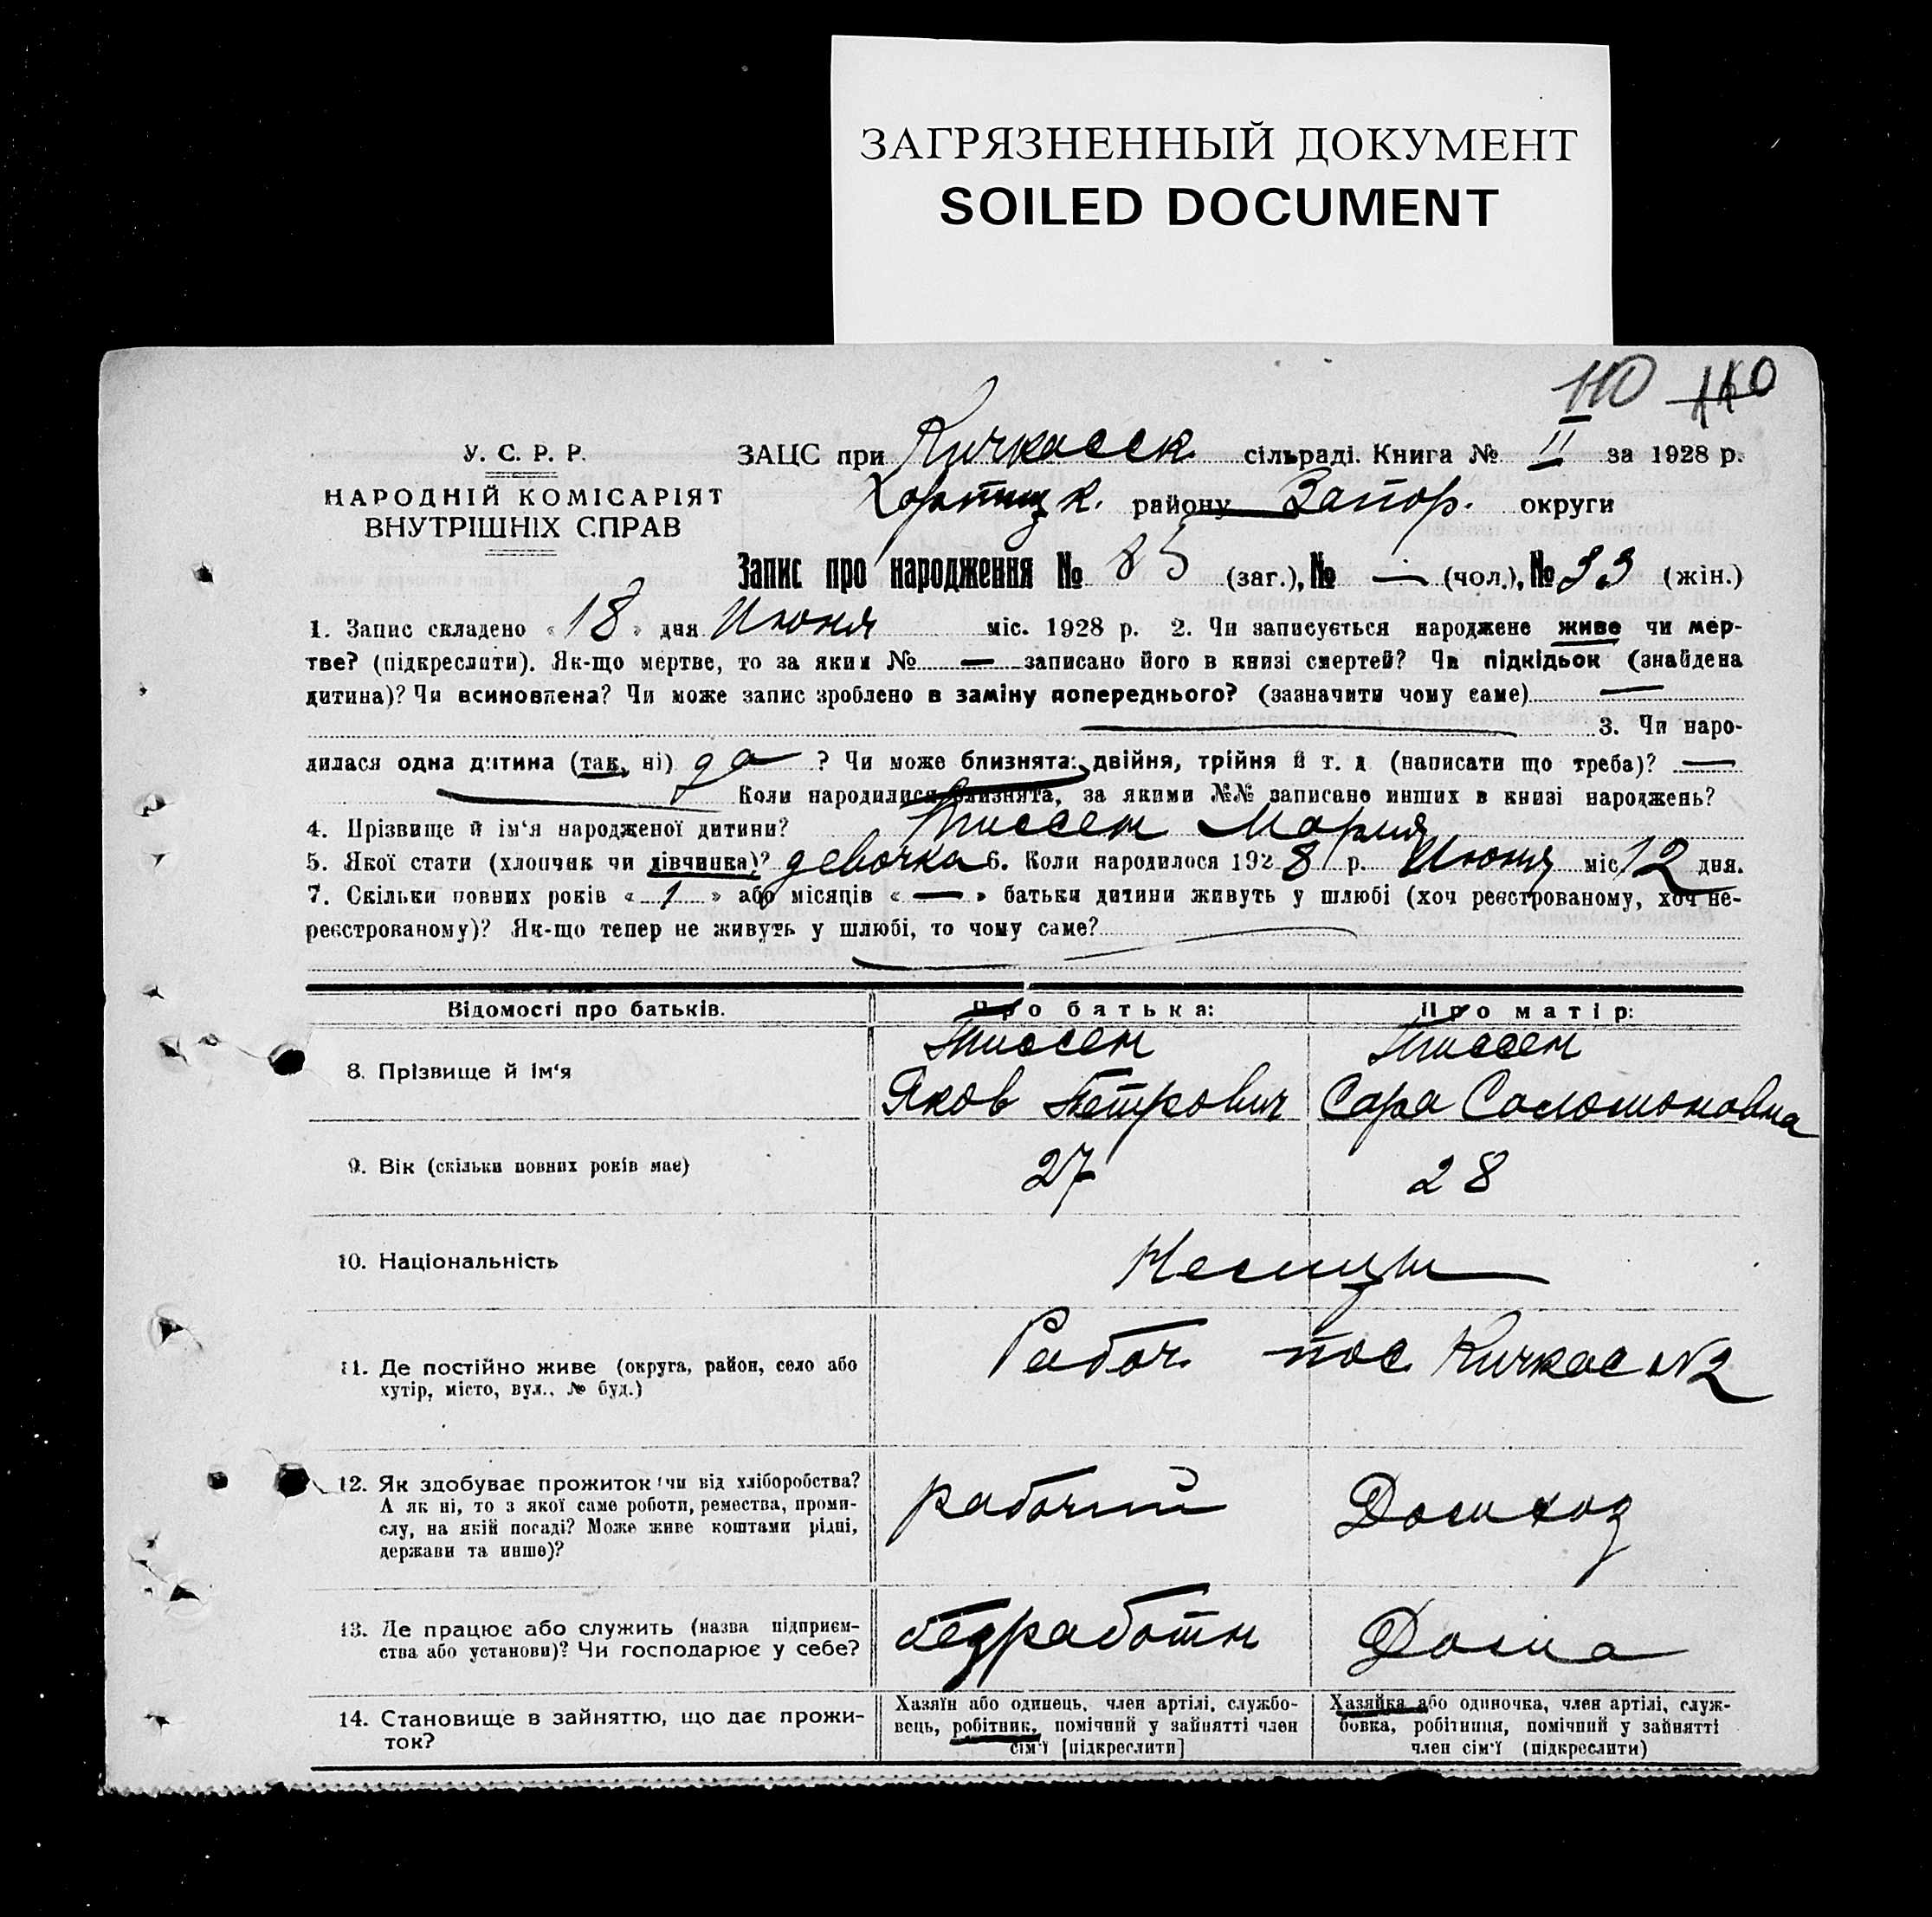 ЗАГРЯЗНЕННЫЙ ДОКУМЕНТ
SOILED DOCUMENT
110 110
У. С. Р. Р.
НАРОДНІЙ КОМІСАРІЯТ
ВНУТРІШНІХ СПРАВ
ЗАЦС при Кичкасск. сільраді. Книга № II за 1928 р.
Хортиц к. району Запор. округи
Запис про народження № 85 (заг.), № — (чол.), № 33 (жін.)
1. Запис складено « 18 » дня Июня міс. 1928 р. 2. Чи записується народжене живе чи мер-
тве? (підкреслити). Як-що мертве, то за яким № — записано його в книзі смертей? Чи підкідьок (знайдена
дитина)? Чи всиновлена? Чи може запис зроблено в заміну попереднього? (зазначити чому саме) —
3. Чи наро-
дилася одна дитина (так, ні) да ? Чи може близнята: двійня, трійня й т. д (написати що треба)? —
Коли народилися близнята, за якими №№ записано инших в книзі народжень?
4. Прізвище й ім‘я народженої дитини? Тиссен Мария
5. Якої стати (хлопчик чи дівчинка)? девочка 6. Коли народилося 1928 р. Июня міс. 12 дня.
7. Скільки повних років « 1 » або місяців « — » батьки дитини живуть у шлюбі (хоч реєстрованому, хоч не-
реєстрованому)? Як-що тепер не живуть у шлюбі, то чому саме?
Відомості про батьків. Про батька: Про матір:
8. Прізвище й ім‘я Тиссен Яков Петрович Тиссен Сара Соломоновна
9. Вік (скільки повних років має) 27 28
10. Національність Немцы
11. Де постійно живе (округа, район, село або
хутір, місто, вул., № буд.) Рабоч. пос. Кичкас №2
12. Як здобуває прожиток (чи від хліборобства?
А як ні, то з якої саме роботи, ремества, проми-
слу, на якій посаді? Може живе коштами рідні,
держави та инше)? рабочий Домхоз
13. Де працює або служить (назва підприєм-
ства або установи)? Чи господарює у себе? безработн Дома
14. Становище в зайняттю, що дає прожи-
ток?
Хазяїн або одинець, член артілі, службо-
вець, робітник, помічний у зайнятті член
сім‘ї [підкреслити]
Хазяйка або одиночка, член артілі, служ-
бовка, робітниця, помічний у зайнятті
член сім‘ї (підкреслити)